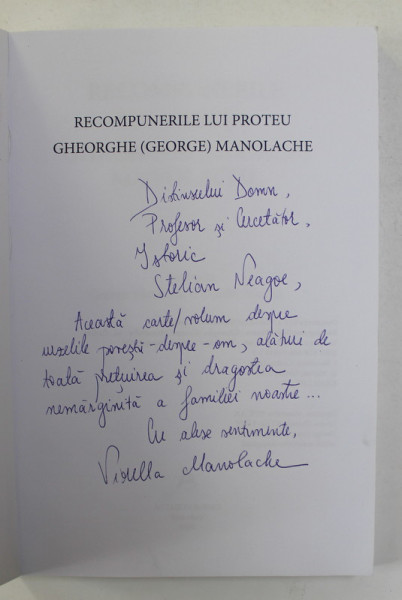 RECOMPUNERILE LUI PROTEU
GHEORGHE (GEORGE) MANOLACHE
Distinsului Domn,
Profesor și Cercetător,
Istoric
Stelian Neagoe,
Această carte/volum despre
uzelile poveștii-despre-om, alături de
toată prețuirea și dragostea
nemărginită a familiei noastre...
Cu alese sentimente,
Viorella Manolache